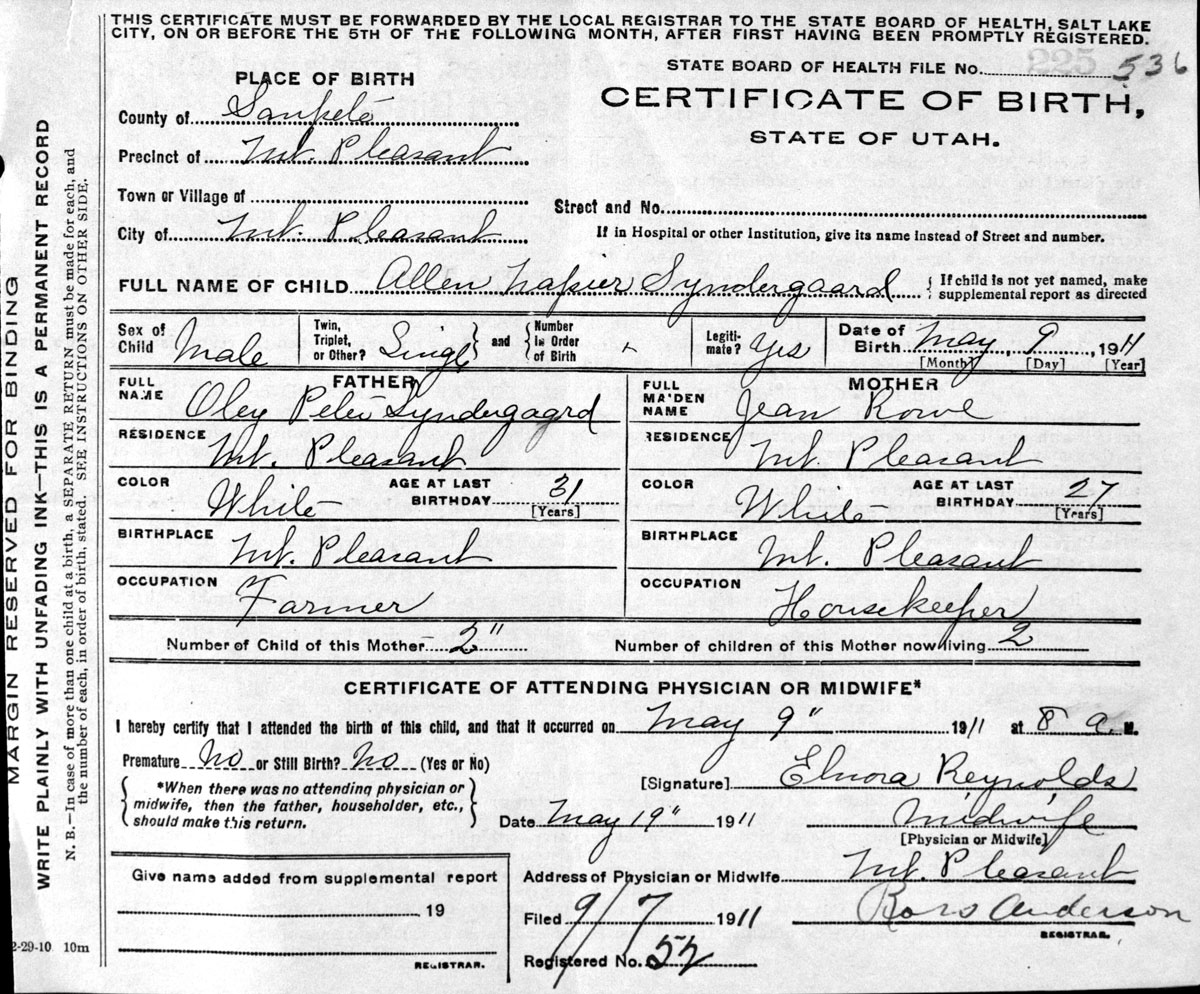 THIS CERTIFICATE MUST BE FORWARDED BY THE LOCAL REGISTRAR TO THE STATE BOARD OF HEALTH, SALT LAKE
CITY, ON OR BEFORE THE 5TH OF THE FOLLOWING MONTH, AFTER FIRST HAVING BEEN PROMPTLY REGISTERED.
MARGIN RESERVED FOR BINDING
WRITE PLAINLY WITH UNFADING INK—THIS IS A PERMANENT RECORD
N. B.—In case of more than one child at a birth, a SEPARATE RETURN must be made for each, and
the number of each, in order of birth, stated. SEE INSTRUCTIONS ON OTHER SIDE.
PLACE OF BIRTH
STATE BOARD OF HEALTH FILE No. 225 536
CERTIFICATE OF BIRTH,
STATE OF UTAH.
County of Sanpete
Precinct of Mt. Pleasant
Town or Village of
Street and No.
City of Mt. Pleasant
If in Hospital or other Institution, give its name Instead of Street and number.
FULL NAME OF CHILD Allen Napier Syndergaard { If child is not yet named, make
supplemental report as directed
Sex of Child Male
Twin, Triplet, or Other? Single and Number In Order of Birth
Legiti-mate? Yes
Date of Birth May 9, 1911
[Month] [Day] [Year]
FATHER
FULL NAME Oley Peter Syndergaard
MOTHER
FULL MAIDEN NAME Jean Rowe
RESIDENCE Mt. Pleasant
RESIDENCE Mt. Pleasant
COLOR White AGE AT LAST BIRTHDAY 31 [Years]
COLOR White AGE AT LAST BIRTHDAY 27 [Years]
BIRTHPLACE Mt. Pleasant
BIRTHPLACE Mt. Pleasant
OCCUPATION Farmer
OCCUPATION Housekeeper
Number of Child of this Mother 2" Number of children of this Mother now living 2
CERTIFICATE OF ATTENDING PHYSICIAN OR MIDWIFE*
I hereby certify that I attended the birth of this child, and that it occurred on May 9" 1911 at 8 a. M.
Premature No or Still Birth? No (Yes or No)
[Signature] Elnora Reynolds
*When there was no attending physician or
midwife, then the father, householder, etc.,
should make this return.
Date May 19" 1911 Midwife
[Physician or Midwife]
Give name added from supplemental report
19
REGISTRAR.
Address of Physician or Midwife Mt. Pleasant
Filed 9/7 1911 Anderson
REGISTRAR.
Registered No. 52
2-29-10 10m